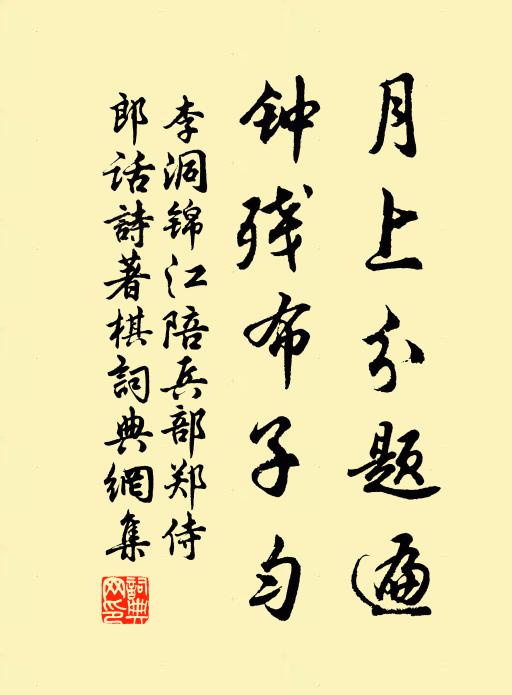 月上分题遍
钟残布子匀
李洞锦江陪兵部郑侍
郎话詩著棋詞典網集
詞典網印